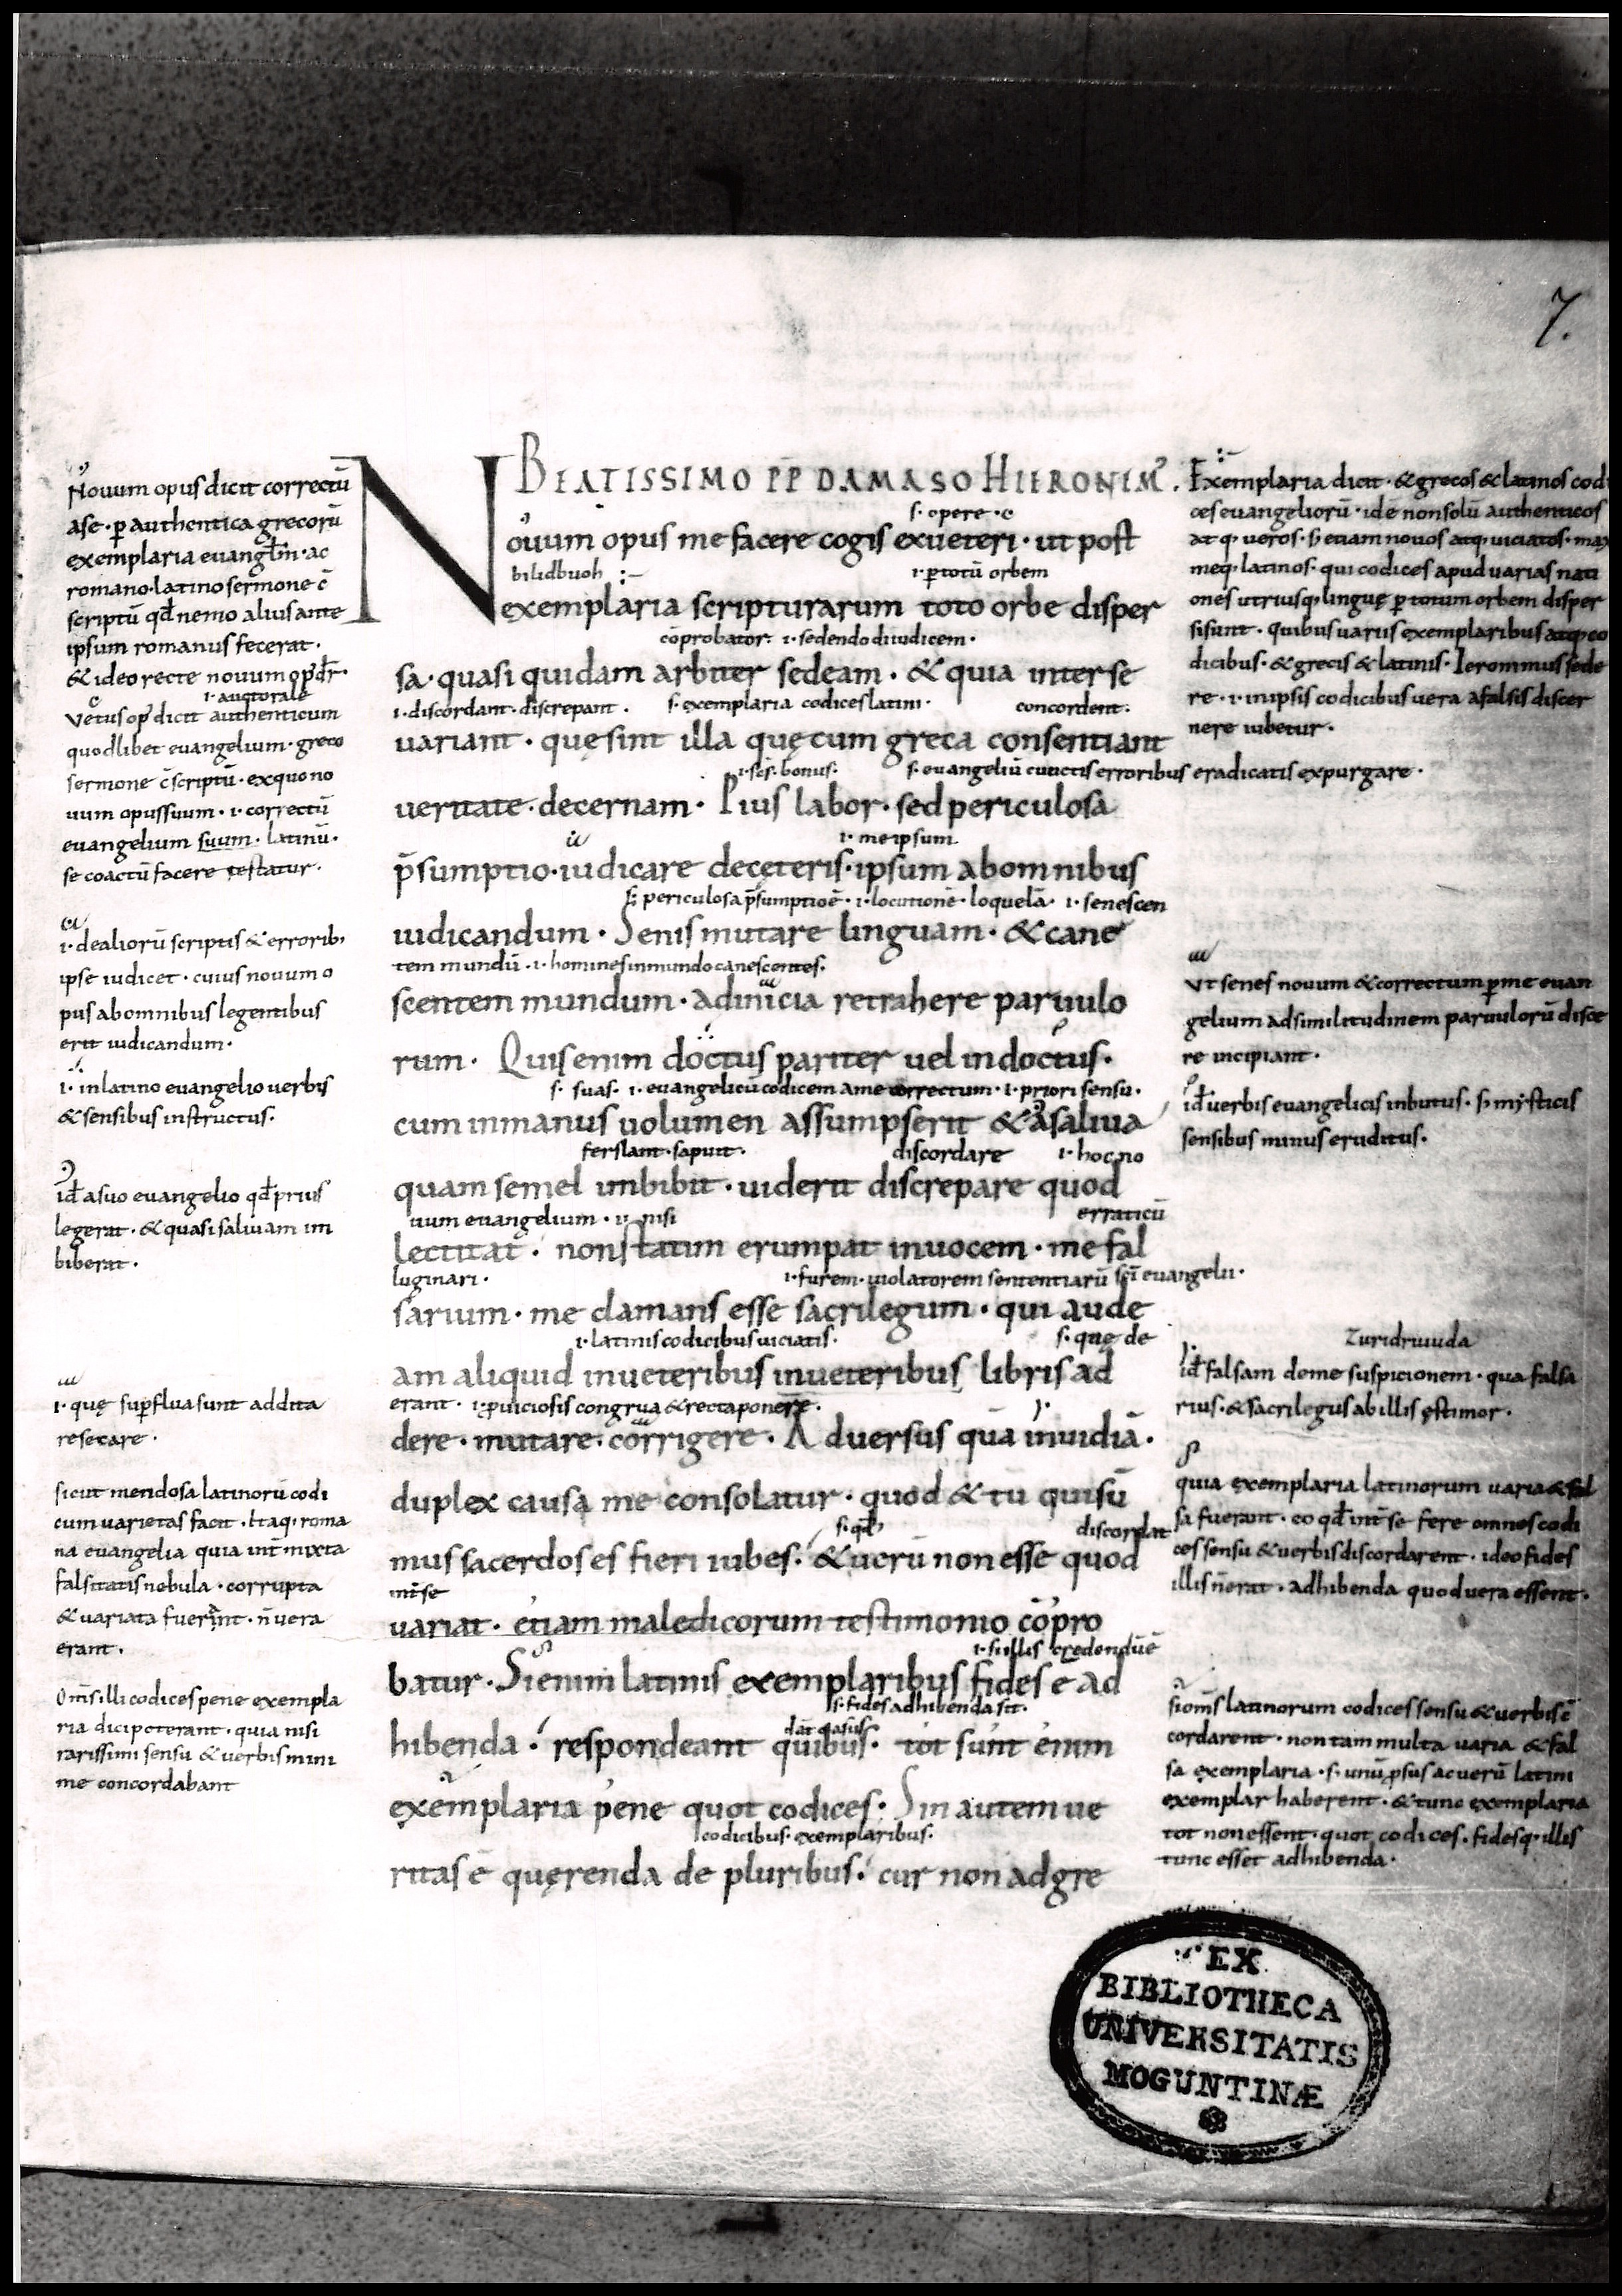 7.
BEATISSIMO PP DAMASO HIERONIMꝰ.
s· opere · e
Nouum opus me facere cogis exueteri · ut post
bilidbuoh :– ı· ptotū orbem
exemplaria scripturarum toto orbe disper
cōprobator· ı· sedendo diiudicem·
sa· quasi quidam arbiter sedeam · & quia interse
ı· discordant· discrepant · s· exemplaria codices latini · concordent·
uariant · quę sint illa quę cum greca consentiant
ı· scs· bonus· s· euangeliū cunctis erroribus eradicatis expurgare ·
ueritate· decernam · Pius labor· sed periculosa
ı· me ipsum
p̄sumptio· iudicare deceteris· ipsum abomnibus
s· periculosa p̄sumptioē · ı· locutionē · loquelā· ı· senescen
iudicandum · Senis mutare linguam · & cane
tem mundū · ı· homines inmundo canescentes·
scentem mundum · adinicia retrahere paruulo
rum · Quis enim doctus pariter uel indoctus·
s· suas· ı· euangelicū codicem ame correctum · ı· priori sensu·
cum inmanus uolumen assumpserit & asaliua
ferslant· sapuit· discordare ı· hoc no
quam semel imbibit · uiderit discrepare quod
uum euangelium · nisi erraticū
lectitat · non statim erumpat inuocem · me fal
luginari · ı· furem· uiolatorem sententiarū sc̄i euangelii·
sarium · me clamans esse sacrilegum · qui aude
ı· latinis codicibus uiciatis· s· quę de
am aliquid inueteribus inueteribus libris ad
erant · ı· puiciosis congrua & recta ponere·
dere · mutare· corrigere · Aduersus quā inuidiā·
duplex causa me consolatur · quod & tū qui sū
s· qd̄ discordat
mus sacerdos es fieri iubes· & uerū non esse quod
int̄se
uariat · etiam maledicorum testimonio cōpro
ı· si illis credendūē
batur · Si enim latinis exemplaribus fides e ad
s· fides adhibenda sit·
hibenda · respondeant quibus· tot sunt enim
exemplaria pene quot codices · Sin autem ue
codicibus· exemplaribus·
ritas ē quęrenda de pluribus· cur non adgre
Nouum opus dicit correctū
ase · p authentica grecorū
exemplaria euangl̄ın· ac
romano· latino sermone c̄
scriptū qd̄ nemo alius ante
ipsum romanus fecerat ·
& ideo recte nouum opꝰ dr̄·
ı· auctorale
Vetus opꝰ dicit authenticum
quodlibet euangelium · greco
sermone c̄scriptū · exquo no
uum opus suum · ı· correctū
euangelium suum· latinū·
se coactū facere testatur·
ı· dealiorū scriptis & errorib;
ipse iudicet · cuius nouum o
pus abomnibus legentibus
erit iudicandum·
ı· inlatino euangelio uerbis
& sensibus instructus·
id̄ asuo euangelio qd̄ prius
legerat · & quasi saliuam im
biberat ·
ı· quę sup̄flua sunt addita
resecare ·
sicut mendosa latinorū codi
cum uarietas facit · Itaq; roma
na euangelia quia int̄mixta
falsitatis nebula · corrupta
& uariata fuerint · n̄ uera
erant ·
Om̄s illi codices pene exempla
ria dici poterant · quia nisi
rarissimi sensu & uerbis mini
me concordabant
Exemplaria dicit · & grecos & latinos codi
ces euangeliorū · idē nonsolū authenticos
atq; ueros· s; etiam nouos atq; uiciatos· max
imeq; latinos· qui codices apud uarias nati
ones utriusq; linguę p totum orbem disper
si sunt · quibus uariis exemplaribus atq; co
dicibus· & grecis & latinis· Ieronimus sede
re · ı· inipsis codicibus uera afalsis discer
nere iubetur·
Vt senes nouum & correctum p me euan
gelium adsimilitudinem paruulorū disce
re incipiant ·
id̄ uerbis euangelicis inbutus· s; mysticis
sensibus minus eruditus·
Zuridruuida
id̄ falsam deme suspicionem · qua falsa
rius· & sacrilegus abillis ęstimor·
quia exemplaria latinorum uaria & fal
sa fuerant · eo qd̄ int̄ se fere omnes codi
ces sensu & uerbis discordarent · ideo fides
illis n̄ erat · adhibenda quod uera essent·
si om̄s latinorum codices sensu & uerbis c̄
cordarent · non tam multa uaria & fal
sa exemplaria · s· unū psus ac uerū latini
exemplar haberent· & tunc exemplaria
tot non essent · quot codices· fidesq; illis
tunc esset adhibenda·
EX
BIBLIOTHECA
UNIVERSITATIS
MOGUNTINÆ